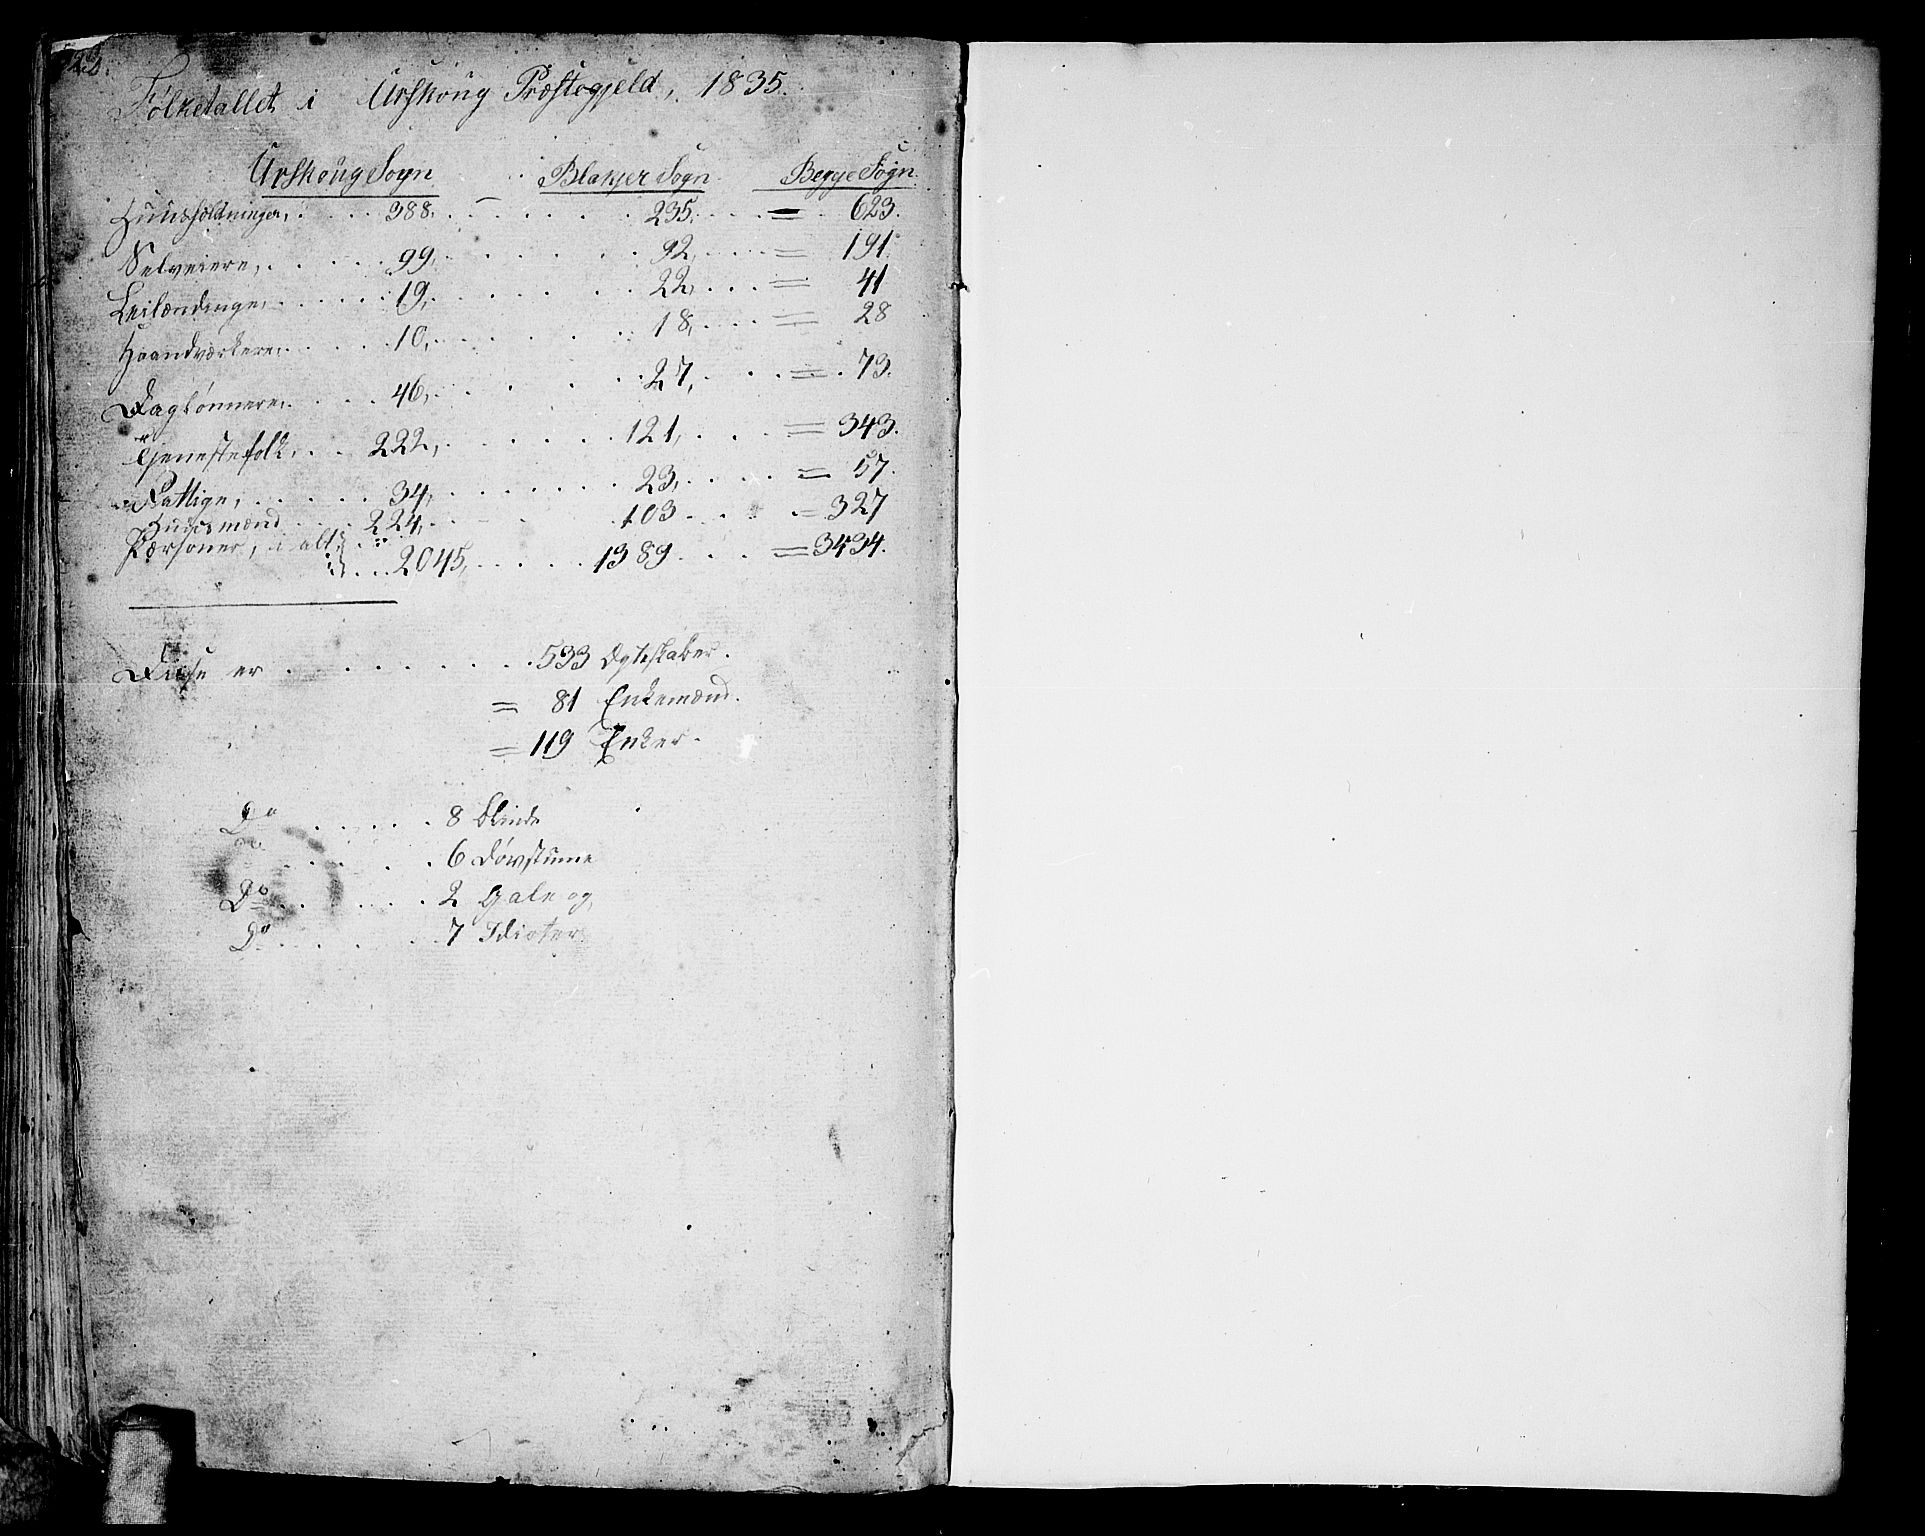 Folketallet i Urskoug Præstegjeld, 1835.
Urskoug Sogn Blakjer Sogn Begge Sogn
Huusholdninger, 388, 235, = 623.
Selveiere, 99, 92, = 191.
Leilændinge, 19, 22, = 41
Haandværkere, 10, 18, = 28
Daglønnere, 46, 27, = 73.
Tjenestefolk, 222, 121, = 343.
Fattige, 34, 23, = 57.
Huusmænd 224, 103 = 327
Personer, i alt 2045, 1389 = 3434.
Disse er 533 Ægteskaber.
= 81 Enkemænd.
= 119 Enker.
Do 8 blinde
6 Døvstumme
Do 2 Gale og
Do 7 Idioter